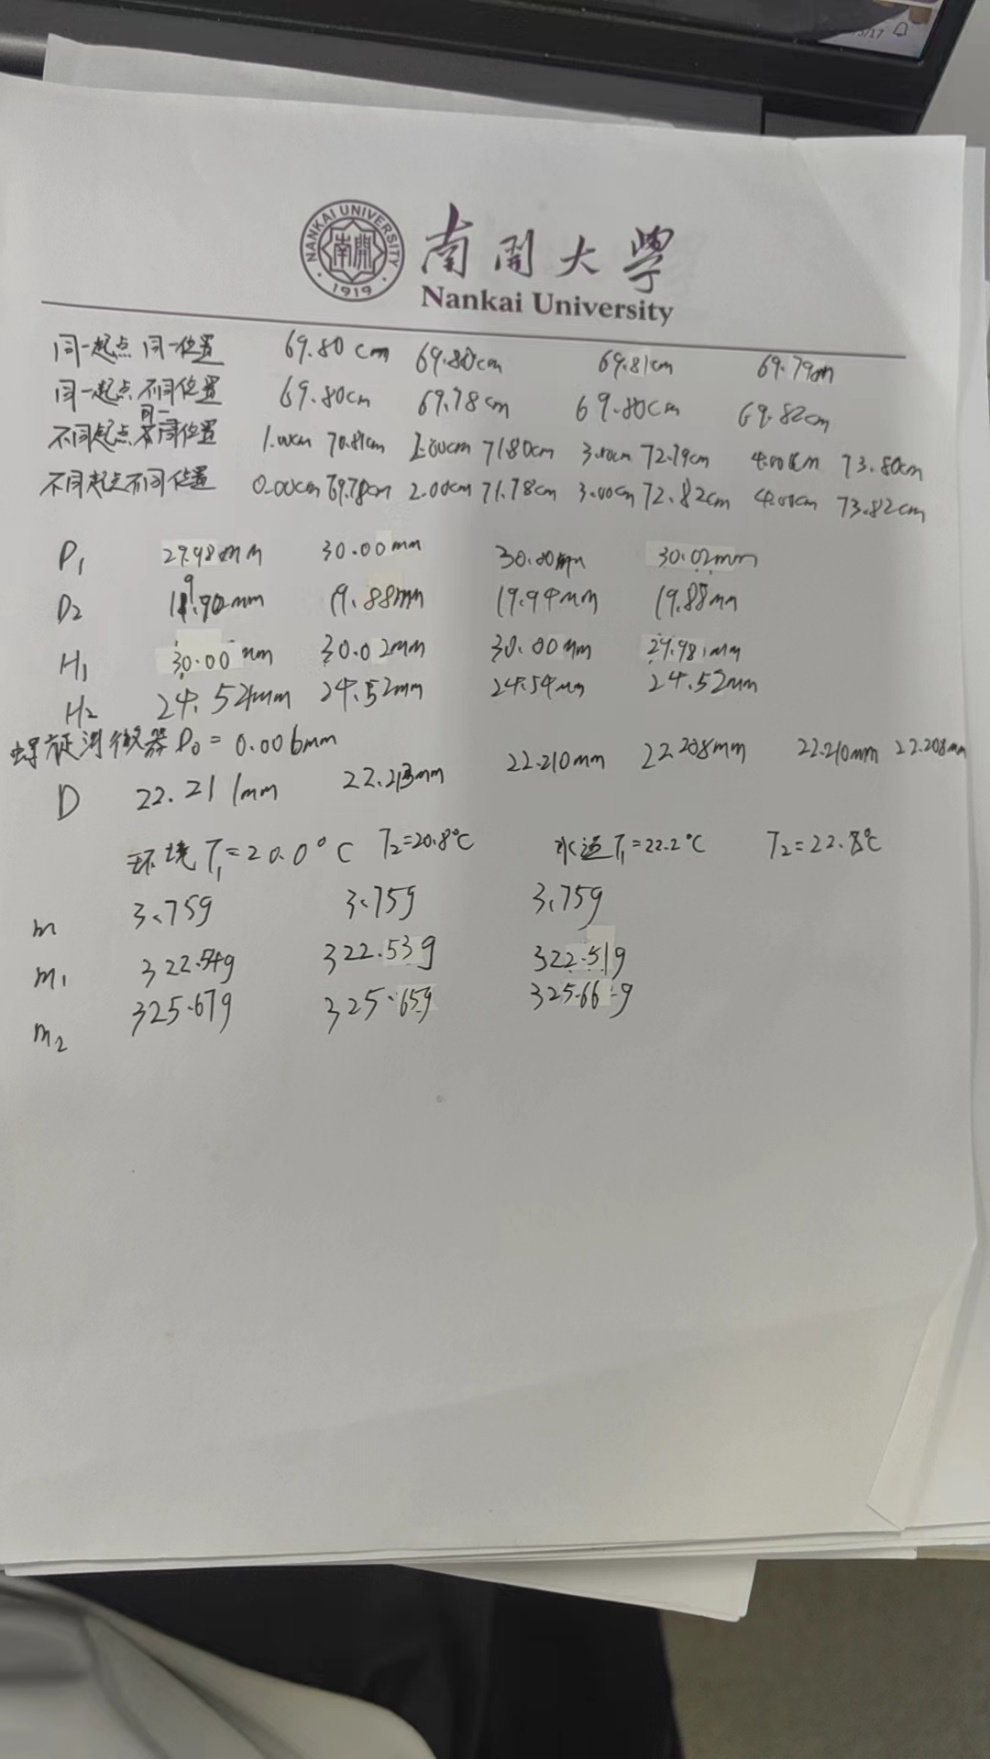 /17
NANKAI UNIVERSITY
南開
1919
南開大學
Nankai University
同一起点 同一位置 69.80cm 69.80cm 69.81cm 69.79cm
同一起点 不同位置 69.80cm 69.78cm 69.80cm 69.82cm
不同起点 同一位置 1.00cm 70.81cm 2.00cm 71.80cm 3.00cm 72.79cm 4.00cm 73.80cm
不同起点不同位置 0.00cm 69.78cm 2.00cm 71.78cm 3.00cm 72.82cm 4.00cm 73.82cm
D₁ 29.98mm 30.00mm 30.00mm 30.02mm
D₂ 19.90mm 19.88mm 19.94mm 19.88mm
H₁ 30.00mm 30.02mm 30.00mm 29.98mm
H₂ 24.52mm 24.52mm 24.54mm 24.52mm
螺旋测微器 D₀=0.006mm
D 22.211mm 22.213mm 22.210mm 22.208mm 22.210mm 22.208mm
环境 T₁=20.0°C T₂=20.8°C 水温 T₁=22.2°C T₂=22.8°C
m 3.75g 3.75g 3.75g
m₁ 322.54g 322.53g 322.51g
m₂ 325.67g 325.65g 325.66g